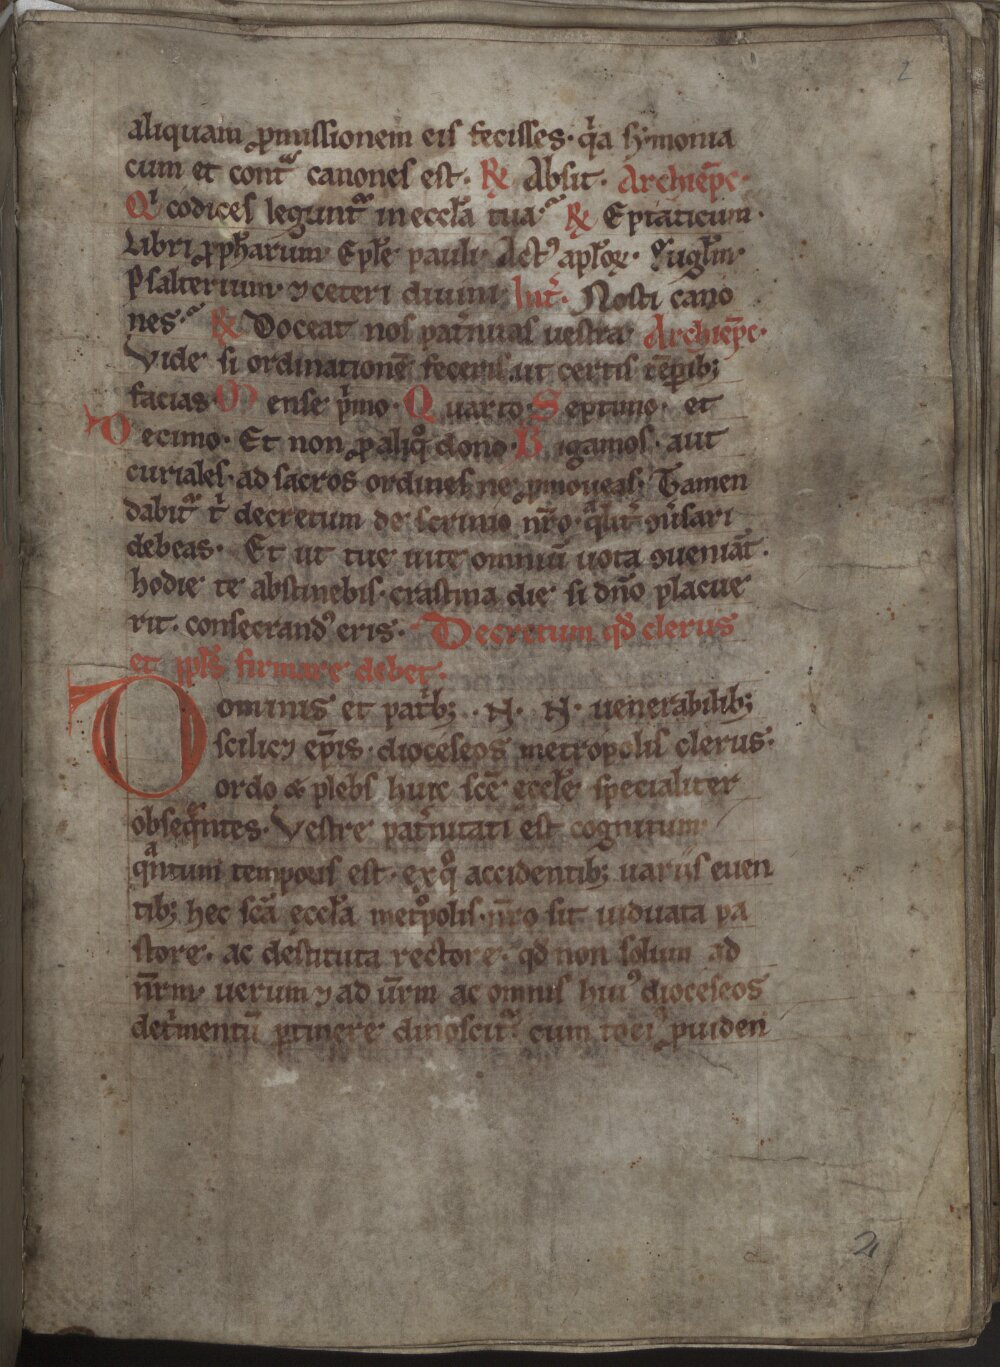 2
aliquam ꝓmissionem eis fecisses· qͥa symonia
cum et contᷓ canones est· ℟ Absit· Archiep̄c·
Qͥ codices leguntᷓ in eccl̄a tua· ℟ Eptaticum·
Libri ꝓph̄arum Ep̄le pauli· Actꝰ apl̄oꝝ·
Psalterium· ⁊ ceteri diuini Int̄· Nosti cano
nes· ℟ Doceat nos pat̄nitas uestra Archiep̄c·
Vide si ordinationē feceris ut certis tēꝑibꝫ
facias· Mense pͥmo· Quarto· Septimo· et
Decimo· Et non ꝓ aliqͦ dono· Bigamos· aut
curiales· ad sacros ordines ne ꝓmoueas· Tamen
dabitᷓ t̄ decretum de scrinio nr̄o· qᷓlit̄ ꝯūsari
debeas· Et ut tue uite omniū uota ꝯueniāt·
hodie te abstinebis· crastina die si dn̄o placue
rit· consecrandꝰ eris· Decretum qd̄ clerus
et ppl̄s firmare debet·
Dominis et pat̄bꝫ ·N· N· uenerabilibꝫ
scilicꝫ ep̄is· dioceseos metropolis clerus·
ordo & plebs huic scē eccl̄e specialiter
obseqᷓntes· Vestre pat̄nitati est cognitum
qᷓntum temporis est· ex qͦ accidentibꝫ uariis euen
tibꝫ hec scā eccl̄a met̄polis· nr̄o sit uiduata pa
store· ac destituta rectore· qd̄ non solum ad
nr̄m· uerum ⁊ ad ūrm ac omnis huiꝰ dioceseos
det̄mentū ꝑtinere dinoscitᷓ cum tociꝰ ꝓuiden
21